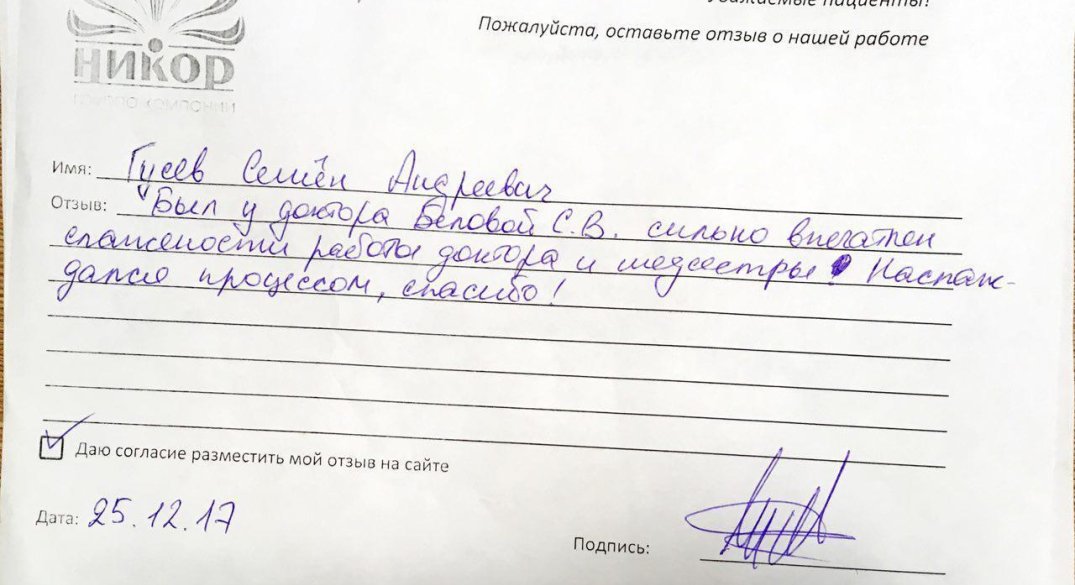 Уважаемые пациенты!
Пожалуйста, оставьте отзыв о нашей работе
НИКОР
ГРУППА КОМПАНИЙ
Имя: Гусев Семён Андреевич
Отзыв: "Был у доктора Беловой С.В. сильно впечатлен
слаженостью работы доктора и медсестры! Наслаж-
дался процессом, спасибо!
Даю согласие разместить мой отзыв на сайте
Дата: 25.12.17
Подпись: